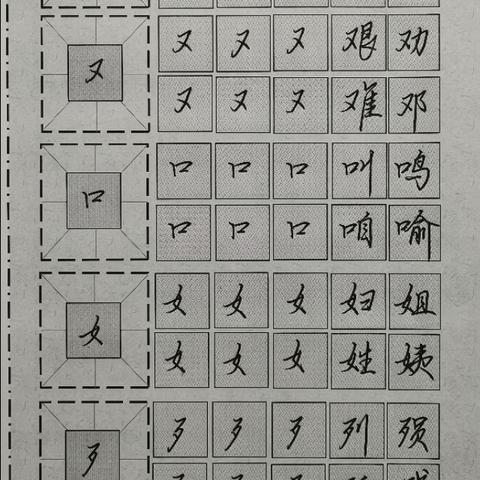 又 又 又 又 艰 劝
又 又 又 难 邓
口 口 口 口 叫 鸣
口 口 口 咱 喻
女 女 女 女 妇 姐
女 女 女 姓 姨
歹 歹 歹 歹 列 殒